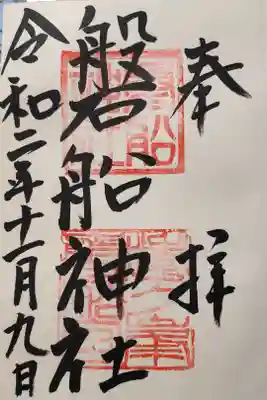 奉拝
磐船神社
令和二年十一月九日